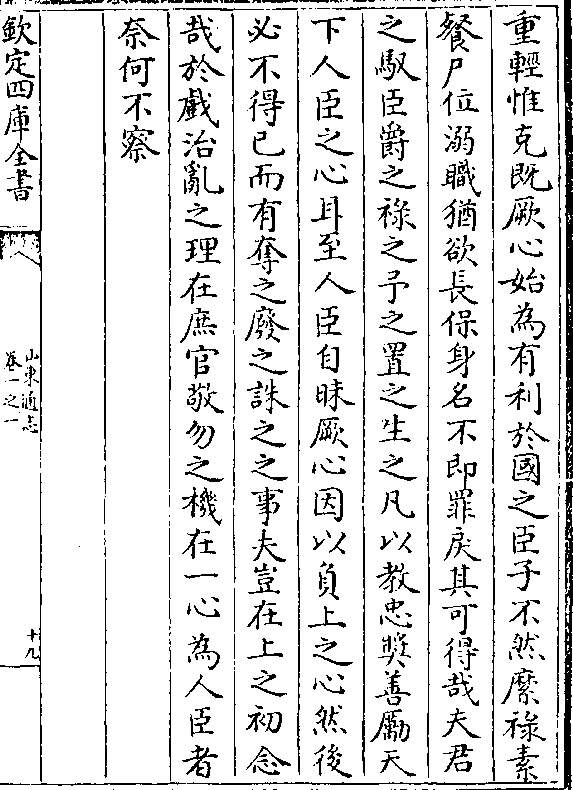 重輕惟克既厥心始為有利於國之臣子不然縻祿素
餐尸位溺職猶欲長保身名不即罪戾其可得哉夫君
之馭臣爵之祿之予之置之生之凡以教忠奬善勵天
下人臣之心耳至人臣自昧厥心因以負上之心然後
必不得已而有奪之廢之誅之之事夫豈在上之初念
哉於戲治亂之理在庶官敬勿之機在一心為人臣者
奈何不察
欽定四庫全書
山東通志
卷一之一
十九